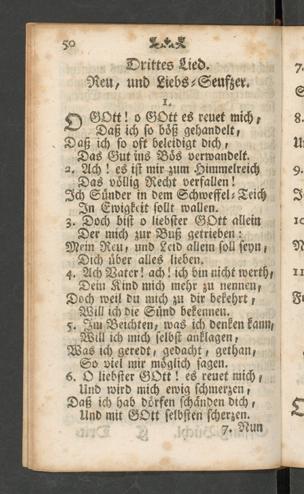 50
Drittes Lied.
Reu, und Liebs-Seufzer.
1.
O GOtt! o GOtt es reuet mich,
Daß ich so böß gehandelt,
Daß ich so oft beleidigt dich,
Das Gut ins Bös verwandelt.
2. Ach! es ist mir zum Himmelreich
Das völlig Recht verfallen!
Ich Sünder in dem Schweffel-Teich
In Ewigkeit sollt wallen.
3. Doch bist o liebster GOtt allein
Der mich zur Buß getrieben:
Mein Reu, und Leid allein soll seyn,
Dich über alles lieben.
4. Ach Vater! ach! ich bin nicht werth,
Dein Kind mich mehr zu nennen,
Doch weil du mich zu dir bekehrt,
Will ich die Sünd bekennen.
5. Im Beichten, was ich denken kann,
Will ich mich selbst anklagen,
Was ich geredt, gedacht, gethan,
So viel mir möglich sagen.
6. O liebster GOtt! es reuet mich,
Und wird mich ewig schmerzen,
Daß ich hab dörfen schänden dich,
Und mit GOtt selbsten scherzen.
7. Nun
7.
8.
9.
10
11